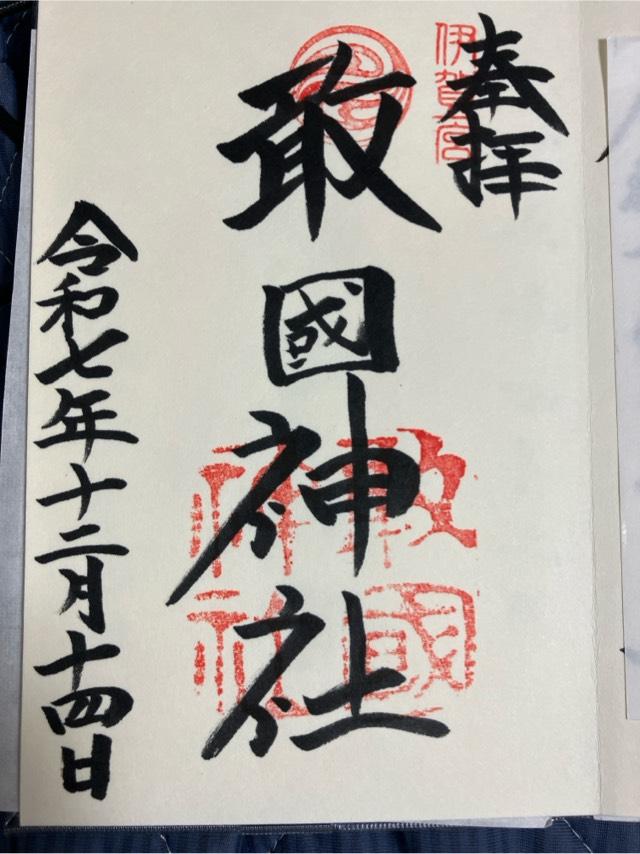 奉拝
伊賀一宮
敢國神社
敢國
神社
令和七年十二月十四日